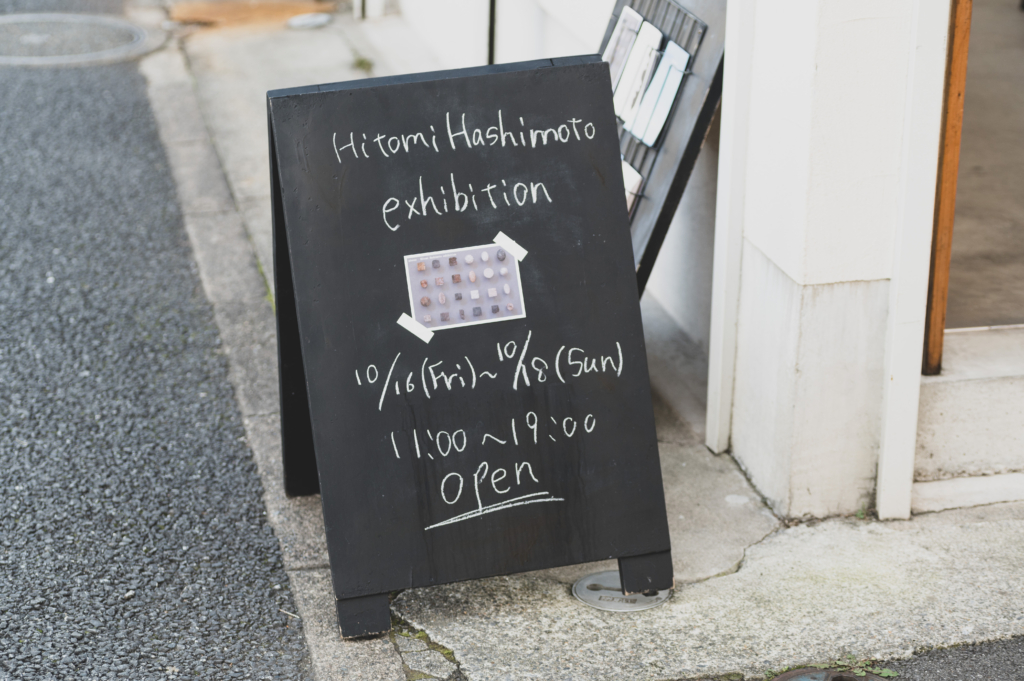 Hitomi Hashimoto
exhibition
10/16(Fri)~10/18(Sun)
11:00~19:00
open